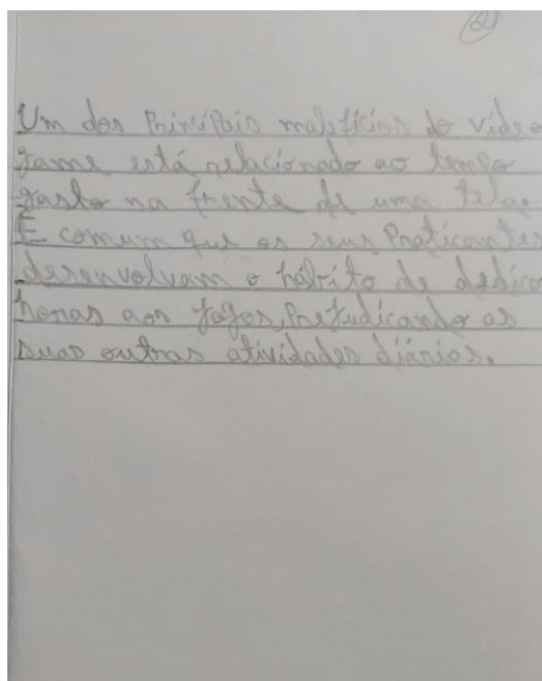 2
Um dos Principais malifícios do vídeo
game está relacionado ao tempo
gasto na frente de uma tela.
É comum que os seus Praticantes
desenvolvam o hábito de dedica
horas aos jogos, Prejudicando as
suas outras atividades diárias.